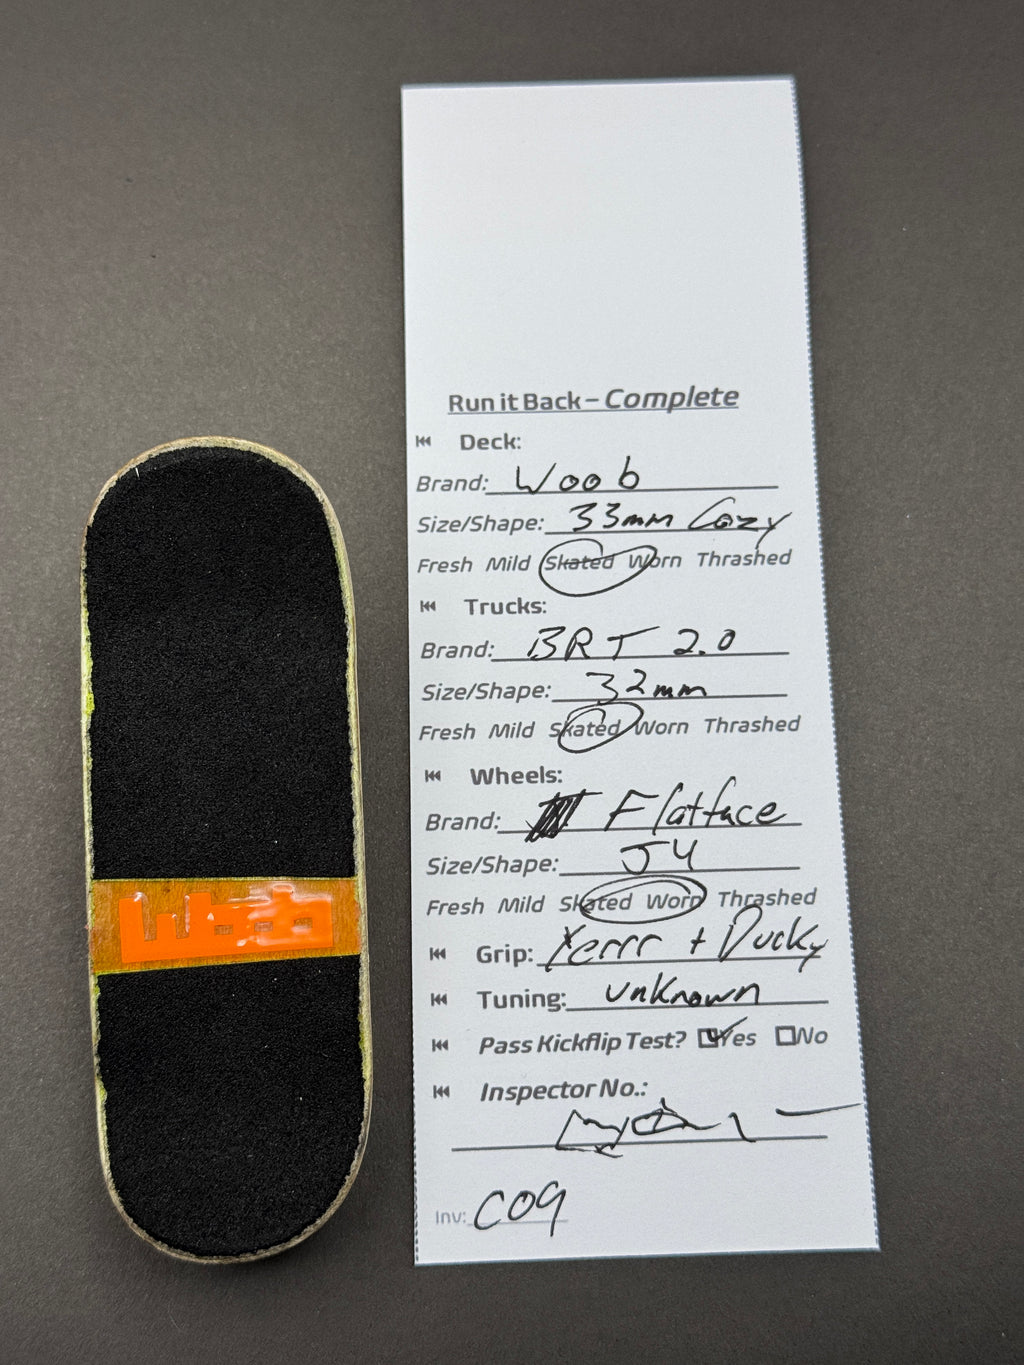 Run it Back – Complete
Deck:
Brand: Woob
Size/Shape: 33mm Cozy
Fresh Mild Skated Worn Thrashed
Trucks:
Brand: BRT 2.0
Size/Shape: 32mm
Fresh Mild Skated Worn Thrashed
Wheels:
Brand: Flatface
Size/Shape: J4
Fresh Mild Skated Worn Thrashed
Grip: Xerrr + Ducky
Tuning: unknown
Pass Kickflip Test? Yes No
Inspector No.:
Inv: C09
Woob